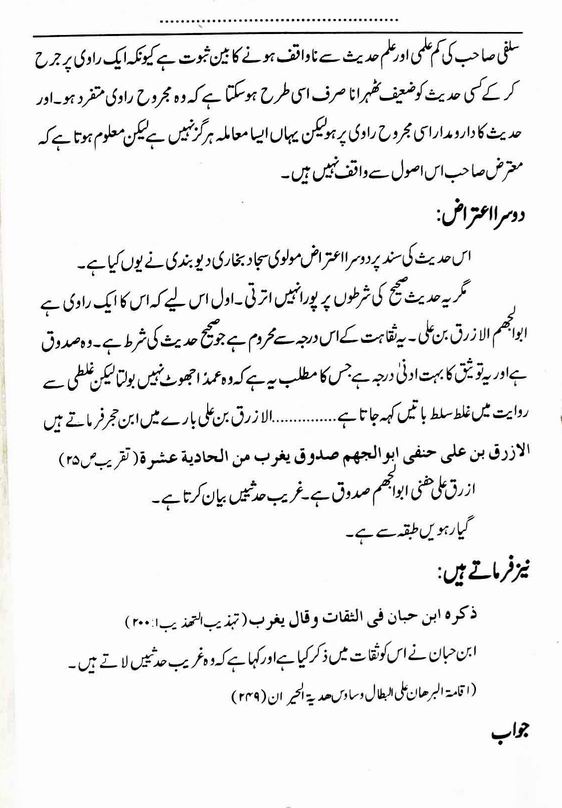 سلفی صاحب کی کم علمی اور علم حدیث سے ناواقف ہونے کا بین ثبوت ہے کیونکہ ایک راوی پر جرح
کر کے کسی حدیث کو ضعیف ٹھہرانا صرف اسی طرح ہو سکتا ہے کہ وہ مجروح راوی متفرد ہو۔ اور
حدیث کا دارومدار اسی مجروح راوی پر ہو لیکن یہاں ایسا معاملہ ہرگز نہیں ہے لیکن معلوم ہوتا ہے کہ
معترض صاحب اس اصول سے واقف نہیں ہیں۔
دوسرا اعتراض:
اس حدیث کی سند پر دوسرا اعتراض مولوی سجاد بخاری دیوبندی نے یوں کیا ہے۔
مگر یہ حدیث صحیح کی شرطوں پر پورا نہیں اترتی۔ اول اس لیے کہ اس کا ایک راوی ہے
ابوالجھم الازرق بن علی۔ یہ ثقاہت کے اس درجہ سے محروم ہے جو صحیح حدیث کی شرط ہے۔ وہ صدوق
ہے اور یہ توثیق کا بہت ادنیٰ درجہ ہے جس کا مطلب یہ ہے کہ وہ عمداً جھوٹ نہیں بولتا لیکن غلطی سے
روایت میں غلط سلط باتیں کہہ جاتا ہے...............الازرق بن علی بارے میں ابن حجر فرماتے ہیں
الازرق بن علی حنفی ابوالجهم صدوق یغرب من الحادیة عشرة (تقریب ص ۲۵)
ازرق علی حنفی ابوالجھم صدوق ہے۔ غریب حدثییں بیان کرتا ہے۔
گیارہویں طبقہ سے ہے۔
نیز فرماتے ہیں:
ذکره ابن حبان فی الثقات وقال یغرب (تہذیب التھذیب ۱:۲۰۰)
ابن حبان نے اس کو ثقات میں ذکر کیا ہے اور کہا ہے کہ وہ غریب حدثییں لاتے ہیں۔
(اقامۃ البرھان علی البطال وساوس ھدیۃ الحیران (۲۴۹)
جواب